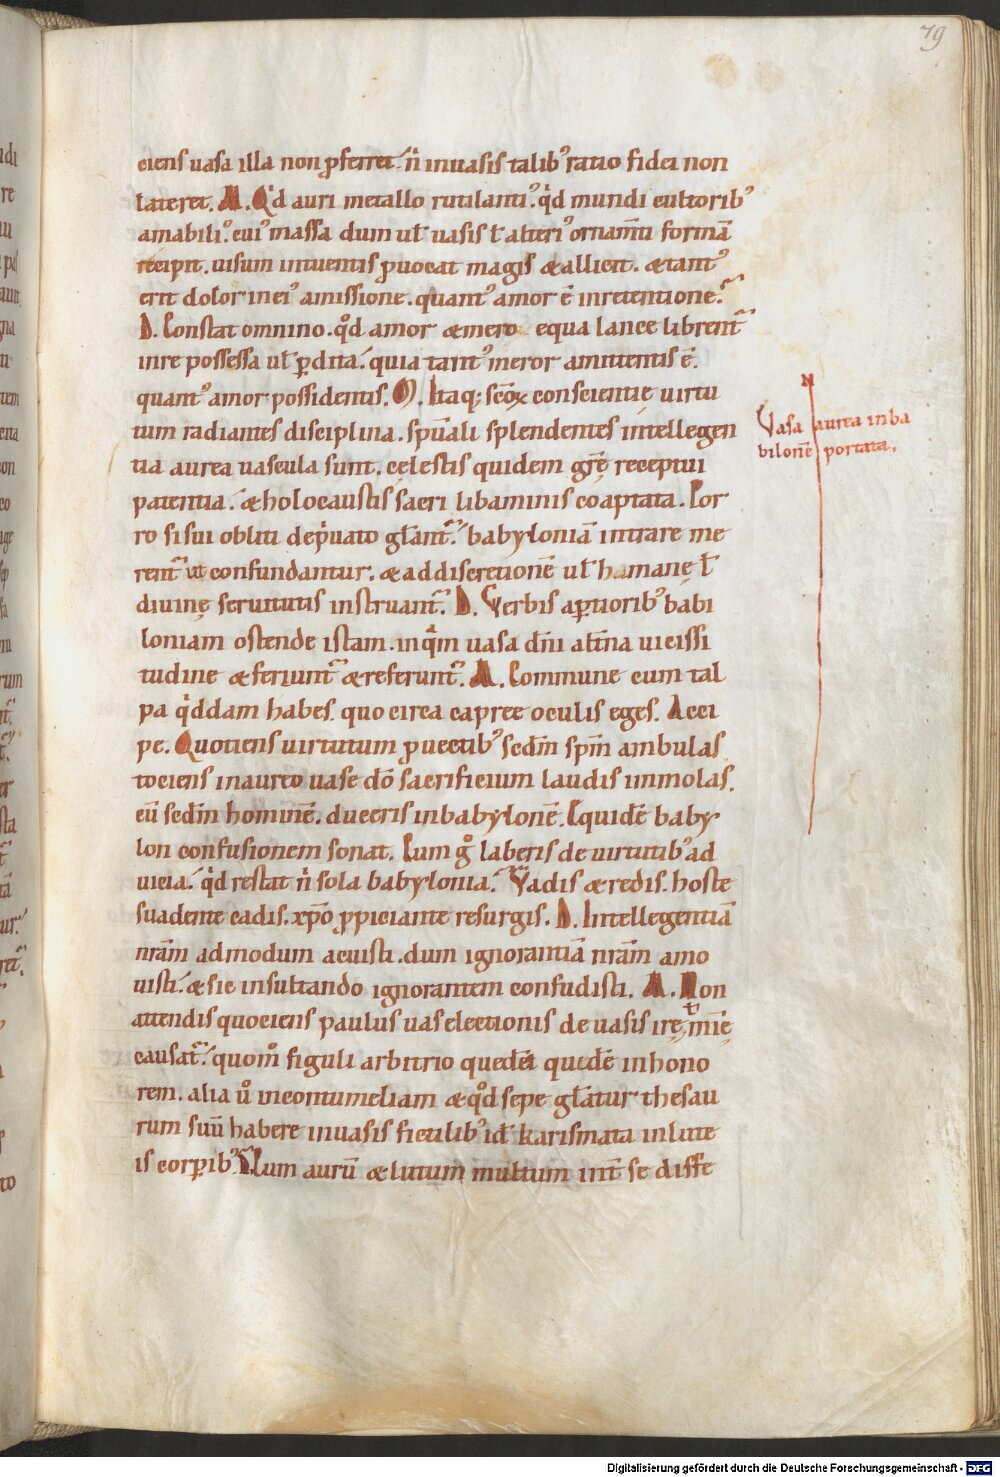 79
ciens uasa illa non ꝓferret. n̄ inuasis talib᾽ ratio fidei non
lateret. M. Qͥd auri metallo rutilanti᾽. qͥd mundi cultorib᾽
amabili᾽. cui᾽ massa dum ul᷑ uasis l᷑ alteri᾽ ornam̄ti formā
recipit. uisum intuentis ꝓuocat magis & allicit. & tant᾽
erit dolor in ei᾽ amissione. quant᾽ amor ē in retentione.
D. Constat omnino. qͦd amor & meror equa lance librent᷑
in re possessa ul᷑ ꝑdita. quia tant᾽ meror amittentis ē.
quant᾽ amor possidentis. M. Itaq; sc̄oꝝ conscientię uirtu
tum radiantes disciplina. spūali splendentes intellegen
tia aurea uascula sunt. cęlestis quidem grę̄ receptui
patentia. & holocaustis sacri libaminis coaptata. Por
ro si sui obliti depͥuato gl̄ant᷑. babyloniā intrare me
rent᷑ ut confundantur. & ad discretionē ul᷑ humanę l᷑
diuinę seruitutis instruant᷑. D. Verbis aꝑtiorib᾽ babi
loniam ostende istam. in qͣm uasa dn̄i alt̄na uicissi
tudine & feriunt᷑ & referunt᷑. M. Commune cum tal
pa qͥddam habes. quo circa capree oculis eges. Acci
pe. Quotiens uirtutum ꝓuectib᾽ sedm̄ spm̄ ambulas
tociens in aureo uase dō sacrificium laudis immolas.
cū sedm̄ hominē. duceris in babylonē. Equidē baby
lon confusionem sonat. Cum gͦ laberis de uirtutib᾽ ad
uicia. qͥd restat n̄ sola babylonia. Vadis & redis. hoste
suadente cadis. xp̄o ꝓpiciante resurgis. D. Intellegentiā
nrām admodum acuisti. dum ignorantiā nrām amo
uisti. & sic insultando ignorantem confudisti. M. Non
attendis quociens paulus uas electionis de uasis irę, l᷑ mīę
causat᷑. quom̄ figuli arbitrio quedā quidē in hono
rem. alia u̇ in contumeliam & qͦd sepe gl̄atur thesau
rum suū habere in uasis fictilib᾽ id᷑ karismata in lute
is corꝑib᾽. Cum aurū & lutum multum int̄ se diffe
Vasa aurea in ba
bilonē portata.
Digitalisierung gefördert durch die Deutsche Forschungsgemeinschaft - DFG